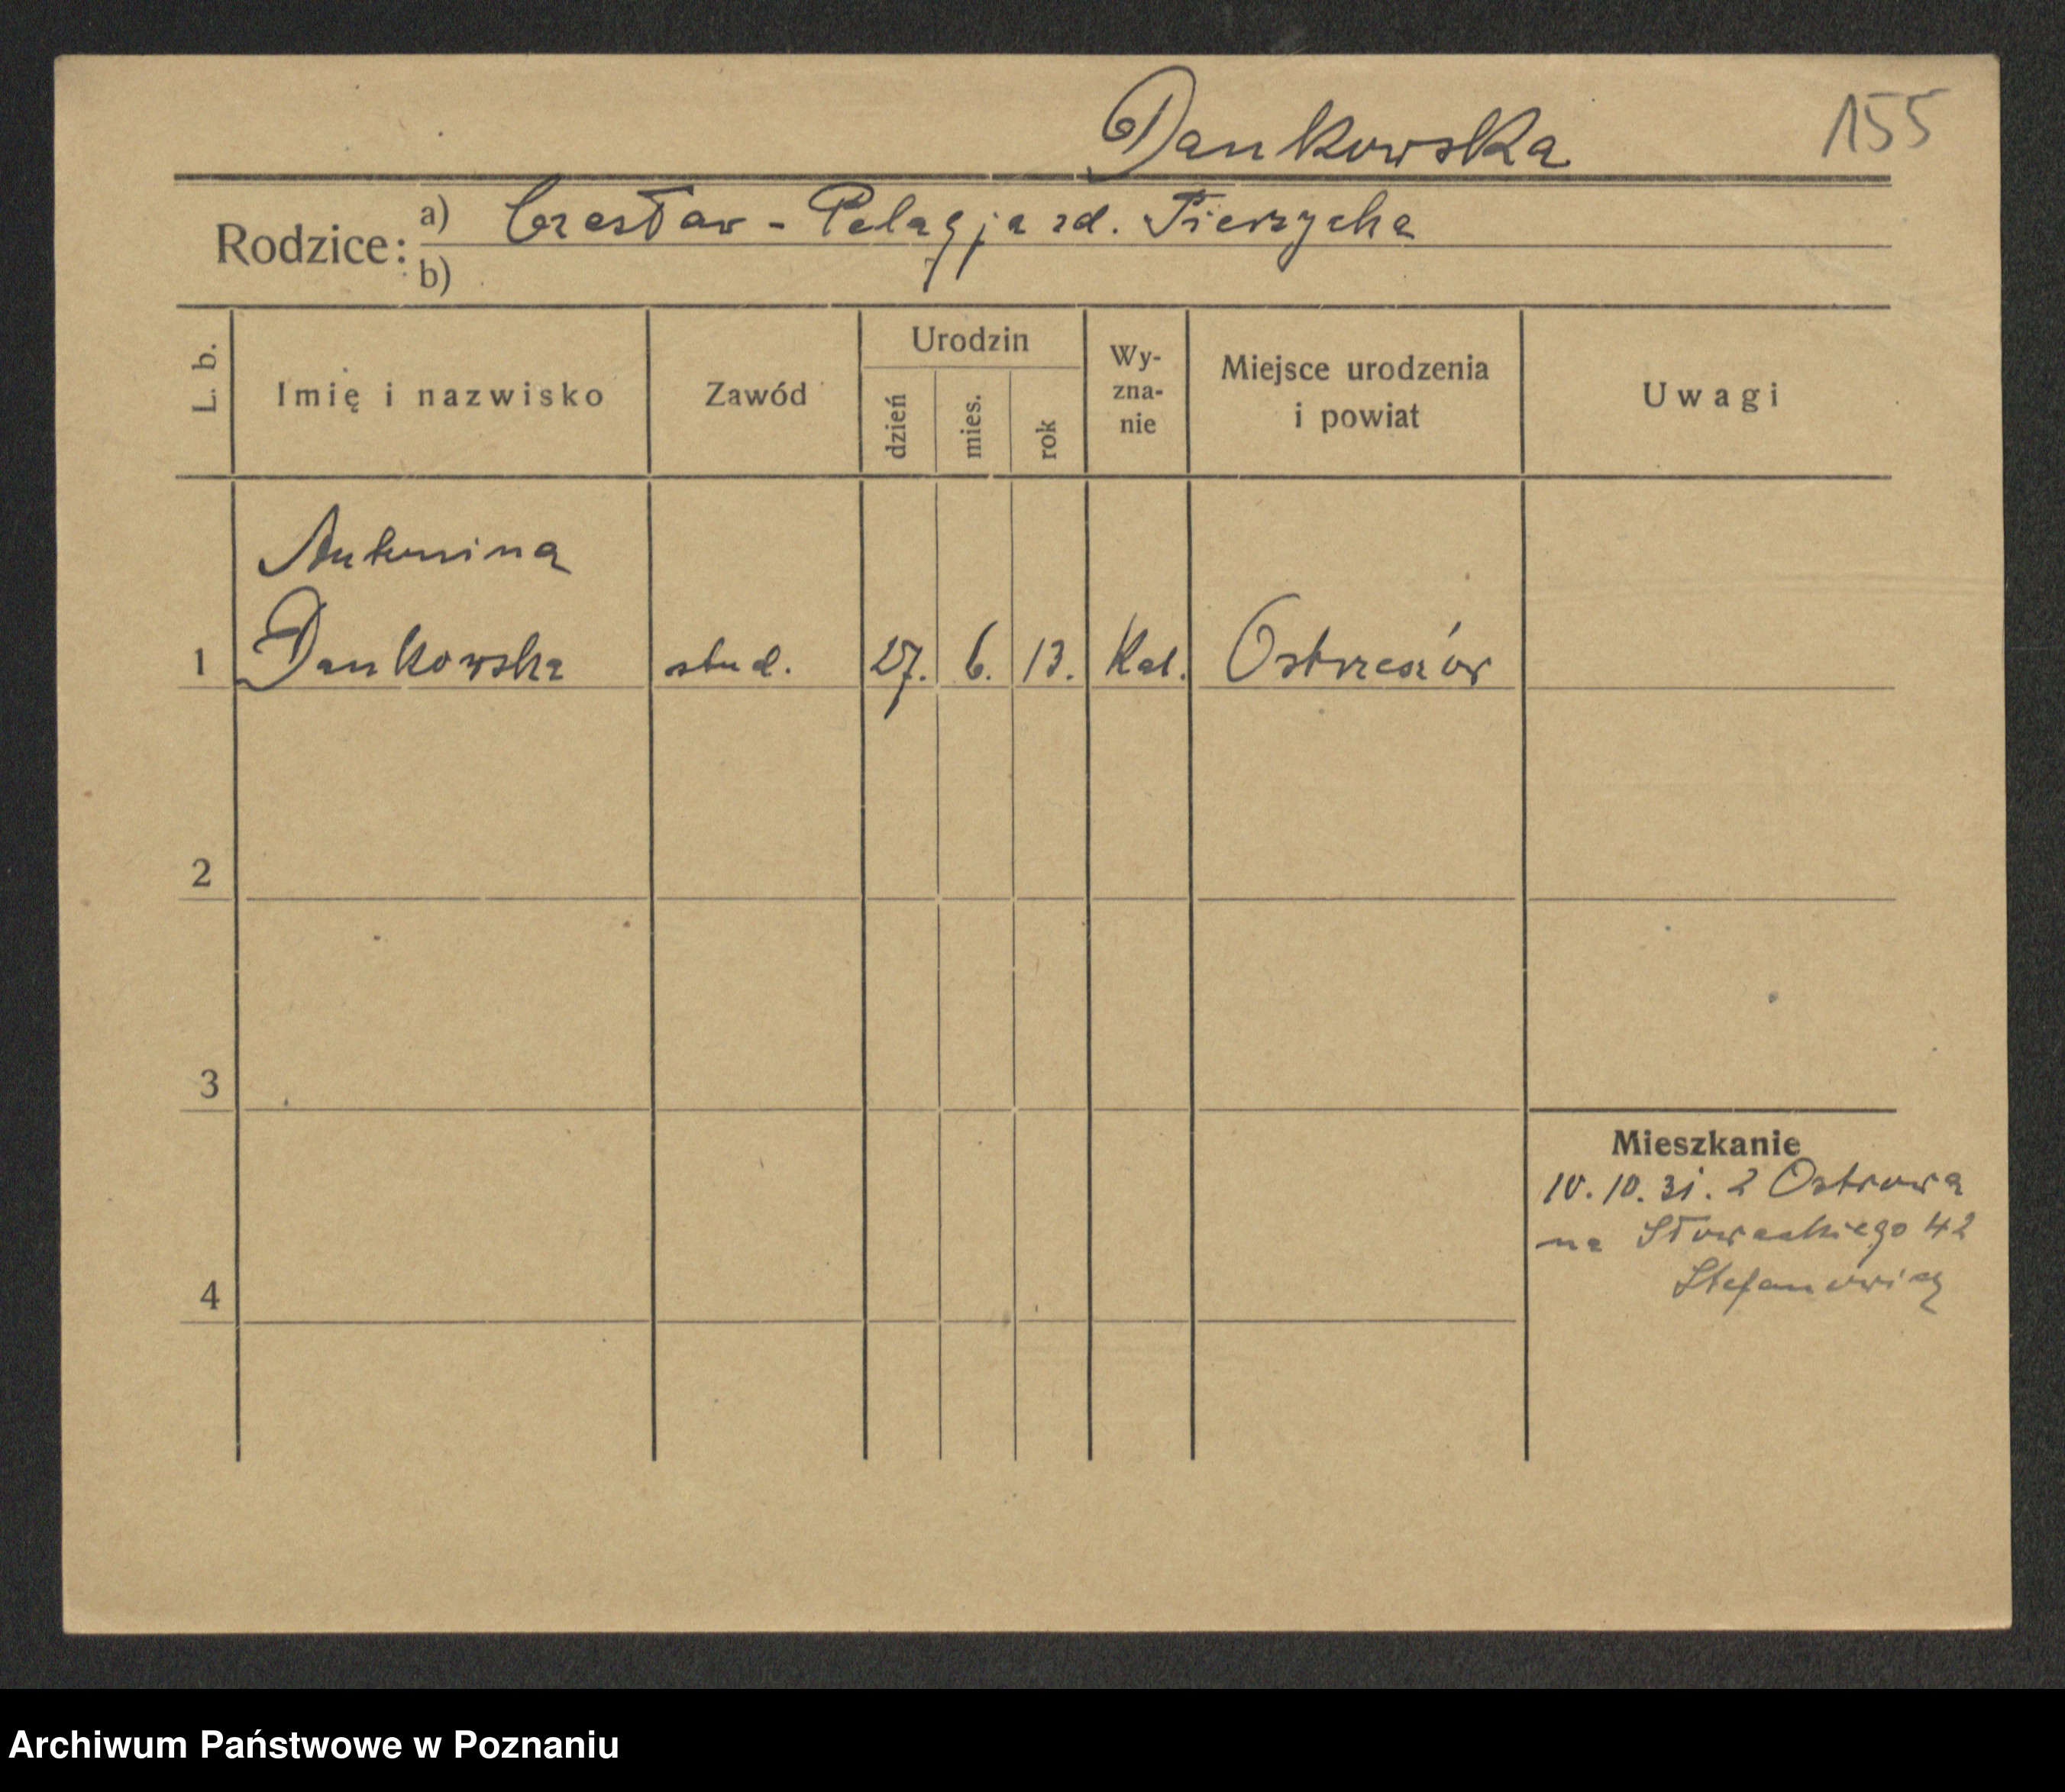 Dankowska
155
Rodzice:
a) Czesław - Pelagja zd. Pierzycka
b)
L. b.
Imię i nazwisko
Zawód
Urodzin
dzień
mies.
rok
Wy-
zna-
nie
Miejsce urodzenia
i powiat
Uwagi
Antonina
1 Dankowska stud. 27. 6. 13. Kat. Ostrzeszów
2
3
4
Mieszkanie
10. 10. 31. z Ostrowa
na Słowackiego 42
Stefanowicz
Archiwum Państwowe w Poznaniu